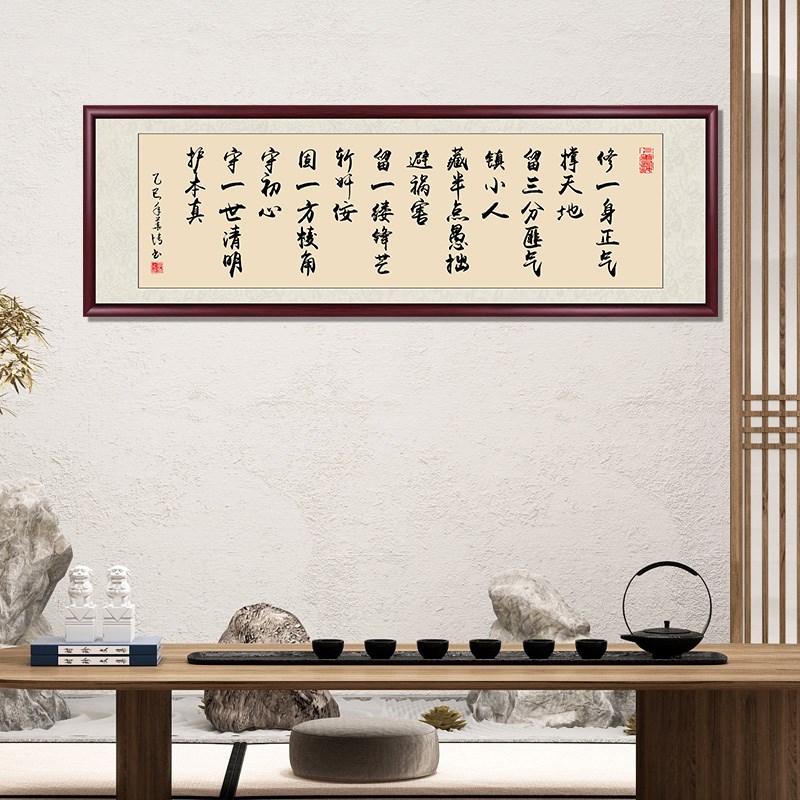 修一身正气
撑天地
留三分匪气
镇小人
藏半点愚拙
避祸害
留一缕锋芒
斩奸佞
固一方棱角
守初心
守一世清明
护本真
乙巳年
书